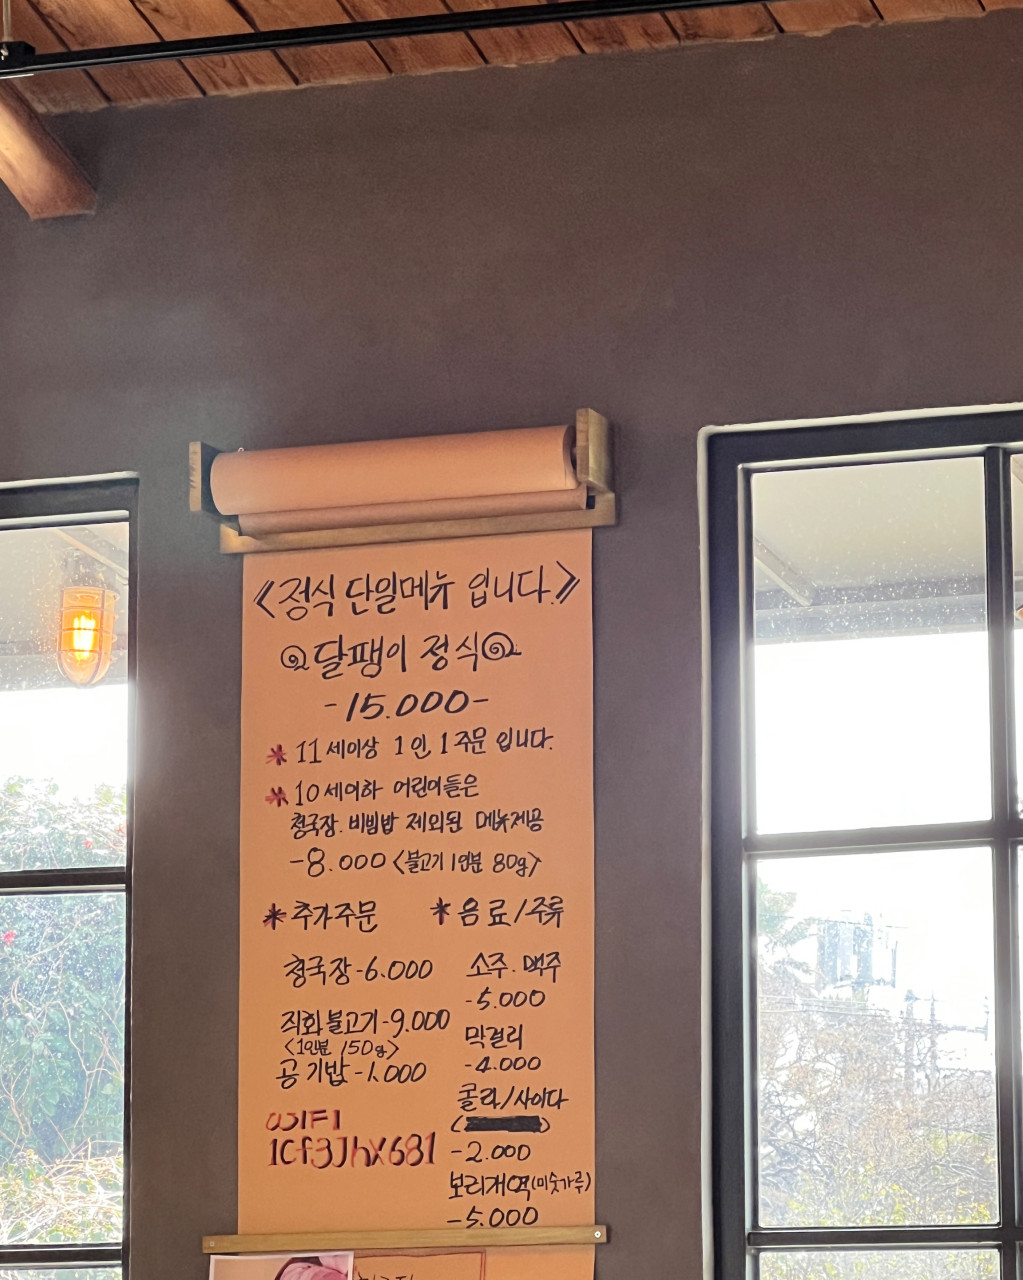 《정식 단일메뉴 입니다.》
달팽이 정식
-15.000-
* 11세이상 1인, 1주문 입니다.
* 10세이하 어린이들은
청국장. 비빔밥 제외된 메뉴제공
-8.000 <불고기 1인분 80g>
* 추가주문
청국장-6.000
직화불고기-9.000
<1인분 150g>
공기밥-1.000
WIFI
1Cf3JhX681
* 음료/주류
소주. 맥주
-5.000
막걸리
-4.000
콜라/사이다
-2.000
보리개역(미숫가루)
-5.000